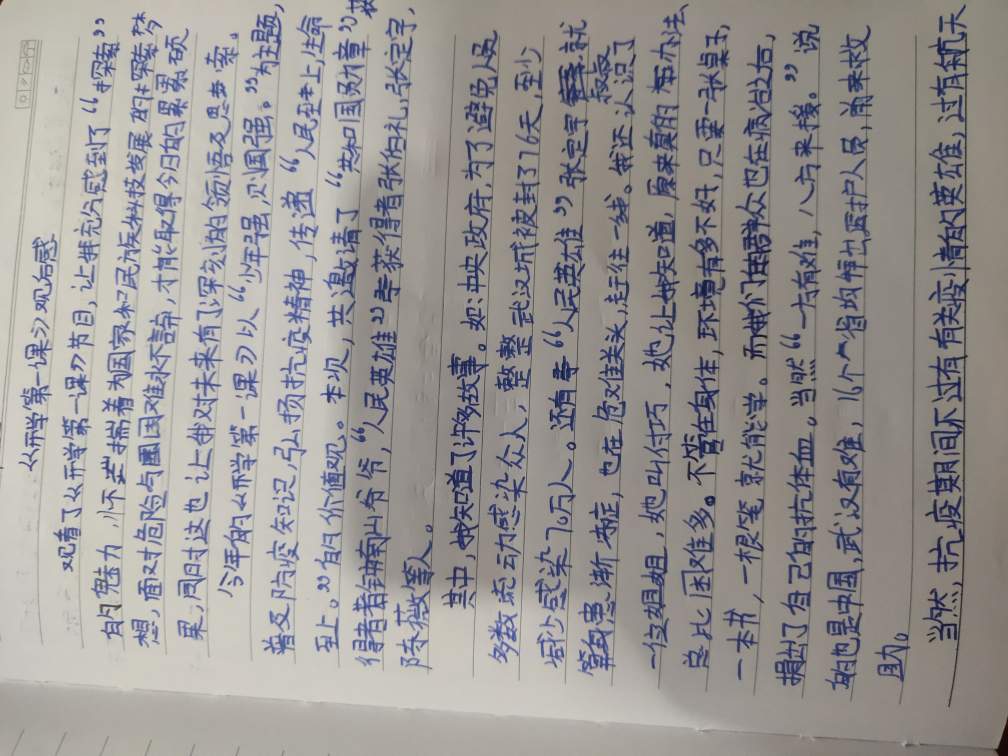 《开学第一课》观后感
观看了《开学第一课》节目，让我充分感到了“探索”
的魅力，怀揣着为国家和民族科技发展的探索梦
想，面对危险与困难永不言弃，才能取得今日的累累硕
果，同时这也让我对未来有了深刻的领悟及思索。
今年的《开学第一课》以“少年强，则国强。”为主题，
普及防疫知识，弘扬抗疫精神，传递“人民至上，生命
至上。”的价值观。本次，共邀请了“共和国勋章”获
得者钟南山爷爷，“人民英雄”荣获得者张伯礼，张定宇，
陈薇等人。
其中，我知道了许多故事。如：中央政府，为了避免人员
多数流动感染众人，整整武汉城被封了76天，至少
减少感染70万人。还有“人民英雄”张定宇叔叔，就
算或患渐冻症，也在危难关头，赶往一线。我还认识了
一位姐姐，她叫付巧，她让我知道，原来真的 办法
总比困难多。不管在身体，环境有多不好，只要一张桌子，
一本书，一根笔就能学。而我们 群众也在病治愈后，
捐出了自己的抗体血。当然“一方有难，八方来援。”说
的也是中国，武汉有难，16个省均派出医护人员，前来救
助。
当然，抗疫期间不过有有关疫小着的英雄，过有航天